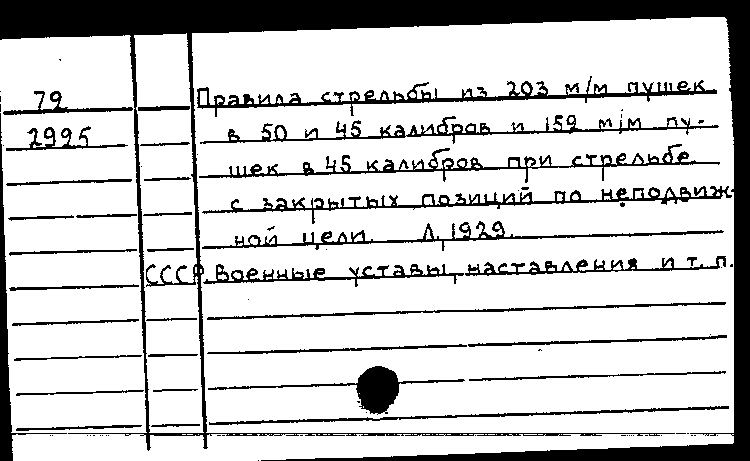 79 Правила стрельбы из 203 м/м пушек
2995 в 50 и 45 калибров и 152 м/м пу-
шек в 45 калибров при стрельбе
с закрытых позиций по неподвиж-
ной цели. Л, 1929.
СССР. Военные уставы, наставления и т. п.